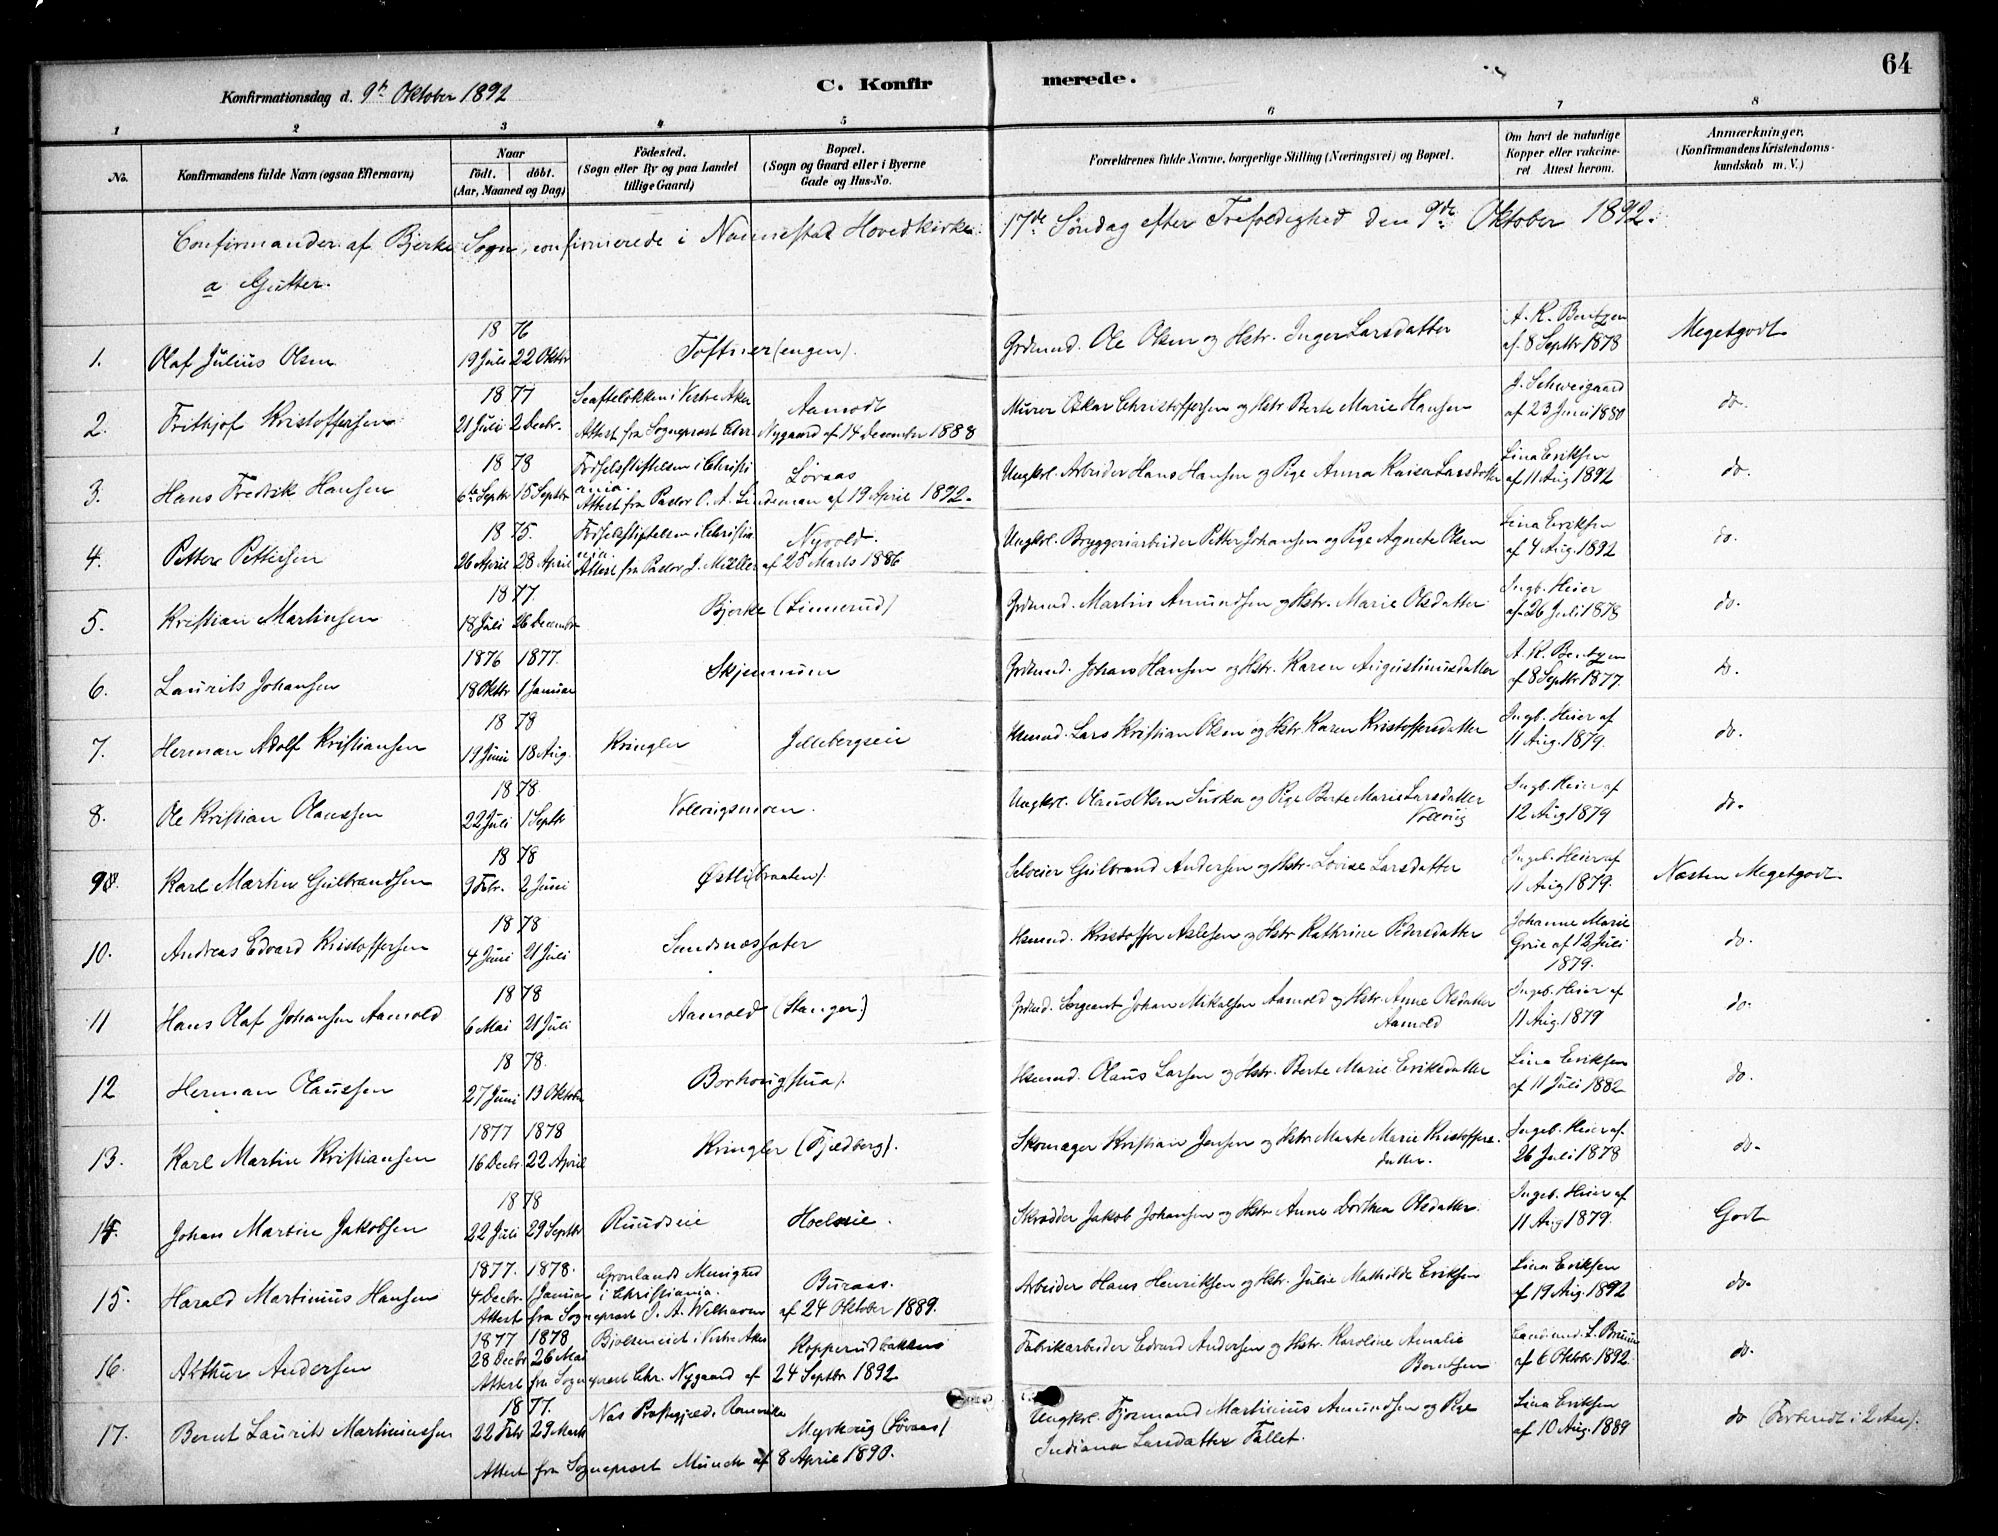 64
Konfirmationsdag d. 9de Oktober 1892
C. Konfirmerede.
1 2 3 4 5 6 7 8
No. Konfirmandens fulde Navn (ogsaa Efternavn) Naar født. døbt. (Aar, Maaned og Dag) Fødested. (Sogn eller By og paa Landet tillige Gaard) Bopæl. (Sogn og Gaard eller i Byerne Gade og Hus-No. Forældrenes fulde Navne, borgerlige Stilling (Næringsvei) og Bopæl. Om havt de naturlige Kopper eller vakcineret Attest herom. Anmærkninger. (Konfirmandens Kristendomskundskab m. V.)
Confirmander af Bjerke Sogn, confirmerede i Nannestad Hovedkirke 17de Søndag efter Trefoldighed den 9de Oktober 1892.
a Gutter.
1. Olaf Julius Olsen 1876 19 Juli 22 Oktbr Toftner (engen). Grdmnd. Ole Olsen og Hstr. Inger Larsdatter A. K. Bentzen af 8 Septbr 1878 Megetgodt
2. Frithjof Kristoffersen 1877 21 Juli 2 Decbr. i Vestre Aker Aamodt Murer Oskar Christoffersen og Hstr Berte Marie Hansen J. Schweigaard af 23 Juni 1880 do.
Attest fra Sogneprest Chr. Nygaard af 14 December 1888
3. Hans Fredrik Hansen 1878 6te Septbr 15 Septbr Fødselsstiftelsen i Christiania. Løvaas Ungkrl. Arbeider Hans Hansen og Pige Anna Kaisa Larsdatter Lina Eriksen af 11 Aug 1892 do.
Attest fra Pastor O. A. Lindeman af 19 April 1892.
4. Petter Pettersen 1875. 26 April 28 April Fødselsstiftelsen i Christiania. Nyvold. Ungkrl. Bryggeriarbeider Petter Johansen og Pige Agnete Olsen Lina Eriksen af 4 Aug. 1892 do.
Attest fra Pastor J. Møller af 25 Marts 1886
5. Kristian Martinsen 1877. 18 Juli 26 Decembr Bjerke (Linnerud) Grdmnd. Martin Amundsen og Hstr. Marie Olsdatter Ingb. Heier af 26 Juli 1878 do.
6. Laurits Johansen 1876 1877. 18 Oktbr 1 Januar Skjennum Grdmnd. Johans Hansen og Hstr. Karen Augustinusdatter A. K. Bentzen af 8 Septbr 1877. do.
7. Herman Adolf Kristiansen 1878 19 Juni 18 Aug. Kringler Jellebergseie Hsmnd. Lars Kristian Olsen og Hstr. Karen Kristoffersdatter Ingb. Heier af 11 Aug. 1879. do.
8. Ole Kristian Olaussen 1878. 22 Juli 1 Septbr Vollaugsmoen. Ungkrl. Olaus Olsen og Pige Berte Marie Larsdatter Ingb. Heier af 12 Aug 1879 do.
9. Karl Martin Gulbrandsen 1878 9 Febr. 2 Juni Østli (braaten). Selveier Gulbrand Andersen og Hstr. Lovise Larsdatter Ingeb. Heier af 11 Aug 1879. Næsten Megetgodt
10. Andreas Edvard Kristoffersen 1878 4 Juni 21 Juli Sandsnæssæter Hsmnd. Kristoffer Aslesen og Hstr Kathrine Pedersdatter Johanne Marie Grue af 12 Juli 1879. do.
11 Hans Olaf Johansen Aamold 1878 6 Mai 21 Juli Aamold (Stanger) Grdmnd. Sergeant Johan Mikalsen Aamold og Hstr. Anne Olsdatter Aamold Ingeb. Heier af 11 Aug. 1879 do.
12 Herman Olaussen 1878. 27 Juni 13 Oktober Borhoug (stua). Hsmnd. Olaus Larsen og Hstr. Berte Marie Eriksdatter Lina Eriksen af 11 Juli 1882 do.
13. Karl Martin Kristiansen 1877 1878 16 Decbr. 22 April Kringler (Fjeldberg). Skomager Kristian Jensen og Hstr Marte Marie Kristoffersdatter. Ingeb. Heier af 26 Juli 1878 do.
14. Johan Martin Jakobsen 1878 22 Juli 29 Septbr Ruudseie Holseie. Skrædder Jakob Johansen og Hstr Anne Dorthea Olsdatter. Ingeb. Heier af 11 Aug 1879. Godt
15. Harald Martinius Hansen 1877. 1878. 4 Decbr. 1 Januar Grønlands Menighed i Christiania. Buraas. Arbeider Hans Henriksen og Hstr. Julie Mathilde Eriksen Lina Eriksen af 19 Aug. 1892 do.
Attest fra Sogneprest J. A. Welhaven af 24 Oktober 1889.
16. Arthur Andersen 1877 1878 28 Decbr 26 Mai Bjølsenveien i Vestre Aker Kopperudbakken Fabrikarbeider Edvard Andersen og Hstr. Karoline Amalie Berntsen Candmed. L. Bruun af 6 Oktobr. 1892. do.
Attest fra Sogneprest Chr. Nygaard af 24 Septbr 1892
17. Bernt Laurits Martiniussen 1877. 22 Febr 29 Marts Næs Prestegjeld, Romerike Myrhoug (Løvaas) Ungkrl. Fjørmand Martinius Amundsen og Pige Indiana Larsdatter Fallet. Lina Eriksen af 10 Aug. 1889 do (Forberedt i 2 Aar).
Attest fra Sogneprest Munch af 8 April 1890.